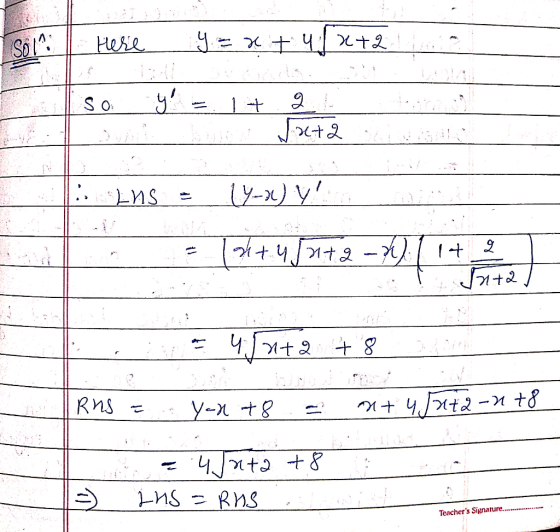 Solⁿ: Here y = x + 4√(x+2)
So y' = 1 + 2/√(x+2)
∴ LHS = (y-x) y'
= (x + 4√(x+2) - x) (1 + 2/√(x+2))
= 4√(x+2) + 8
RHS = y-x+8 = x + 4√(x+2) - x + 8
= 4√(x+2) + 8
⇒ LHS = RHS
Teacher's Signature..................